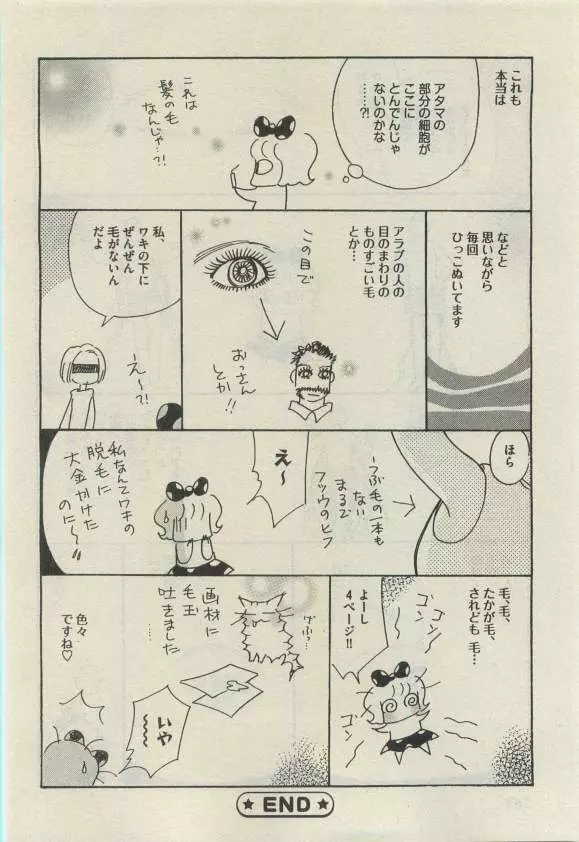 これも
本当は
アタマの
部分の細胞が
ここに
とんでんじゃ
ないのかな
……?!
これは
髪の毛
なんじゃ…?!
などと
思いながら
毎回
ひっこぬいてます
アラブの人の
目のまわりの
ものすごい毛
とか…
この目で
おっさん
とか!!
私、
ワキの下に
ぜんぜん
毛がないん
だよ
えー〜?!
ほら
うぶ毛の一本も
ない
まるで
フツウのヒフ
え〜
私なんてワキの
脱毛に
大金かけた
のに〜
毛、毛、
たかが毛、
されども 毛…
ゴン
ゴン
ゴン
よーし
4ページ!!
げふっ…
画材に
毛玉
吐きました
いや〜
色々
ですね♡
★ END ★